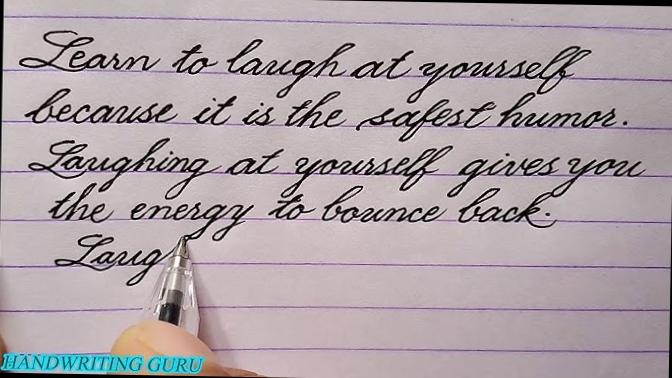 Learn to laugh at yourself
because it is the safest humor.
Laughing at yourself gives you
the energy to bounce back.
Laug
HANDWRITING GURU